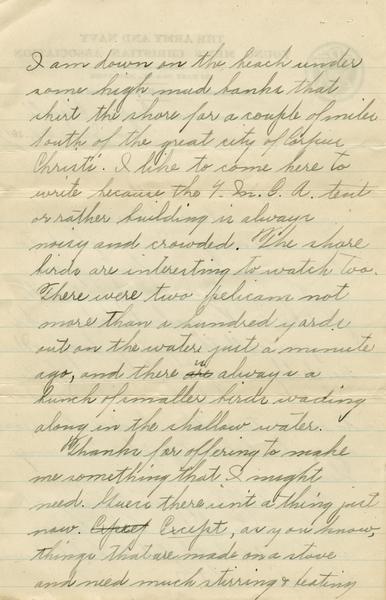 I am down on the beach under
some high mud banks that
skirt the shore for a couple of miles
South of the great city of Corpus
Christi. I like to come here to
write because the Y.M.C.A. tent
or rather building is always
noisy and crowded. The shore
birds are interesting to watch too.
There were two pelicans not
more than a hundred yards
out on the water just a minute
ago, and there is always a
bunch of smaller birds wading
along in the shallow water.
Thanks for offering to make
me something that I might
need. Guess there isn't a thing just
now. Except, as you know,
things that are made on a stove
and need much stirring & beating